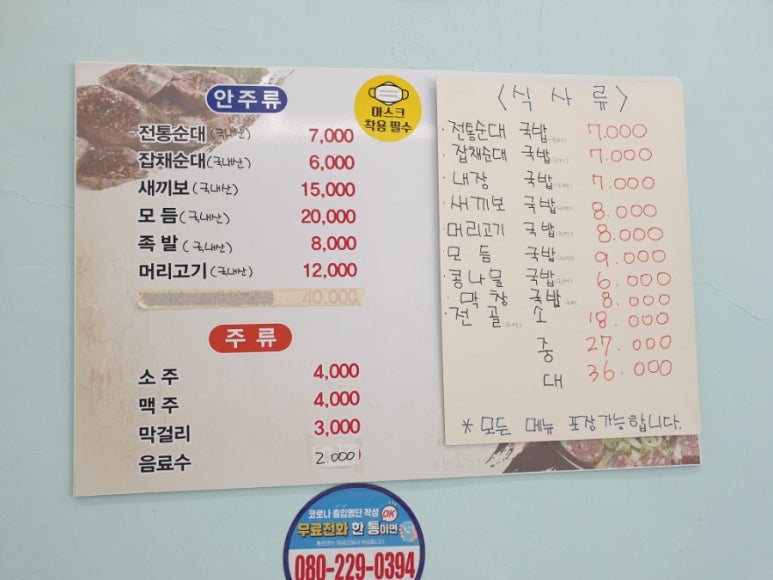 안주류
전통순대(국내산) 7,000
잡채순대(국내산) 6,000
새끼보(국내산) 15,000
모 듬(국내산) 20,000
족 발(국내산) 8,000
머리고기(국내산) 12,000
40,000
주 류
소 주 4,000
맥 주 4,000
막걸리 3,000
음료수 2.000
마스크
착용 필수
<식 사 류>
·전통순대 국밥 7.000
·잡채순대 국밥 7.000
·내장 국밥 7.000
·새끼보 국밥 8.000
·머리고기 국밥 8.000
·모 듬 국밥 9.000
·콩나물 국밥 6.000
·막창 국밥 8.000
·전 골 소 18.000
중 27.000
대 36.000
* 모든 메뉴 포장가능합니다.
코로나 출입명단 작성 OK
무료전화 한 통이면
080-229-0394